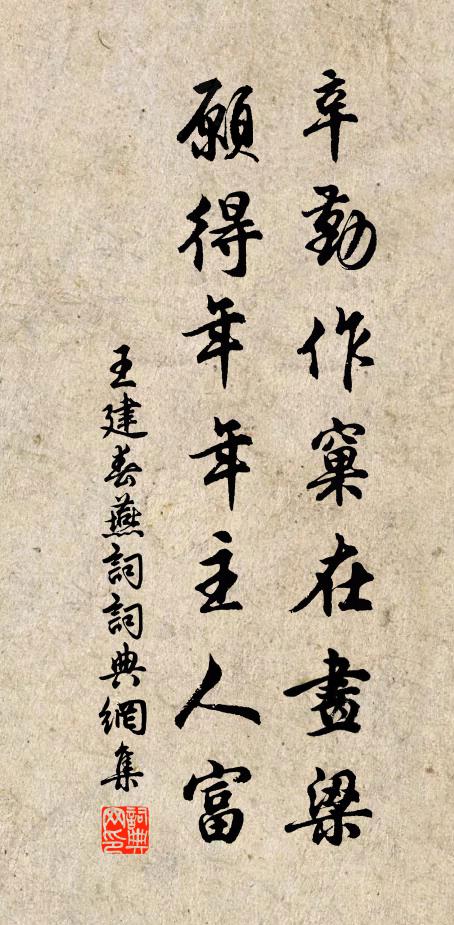 辛勤作窠在畫梁
願得年年主人富
王建春燕詞詞典網集
詞典網印